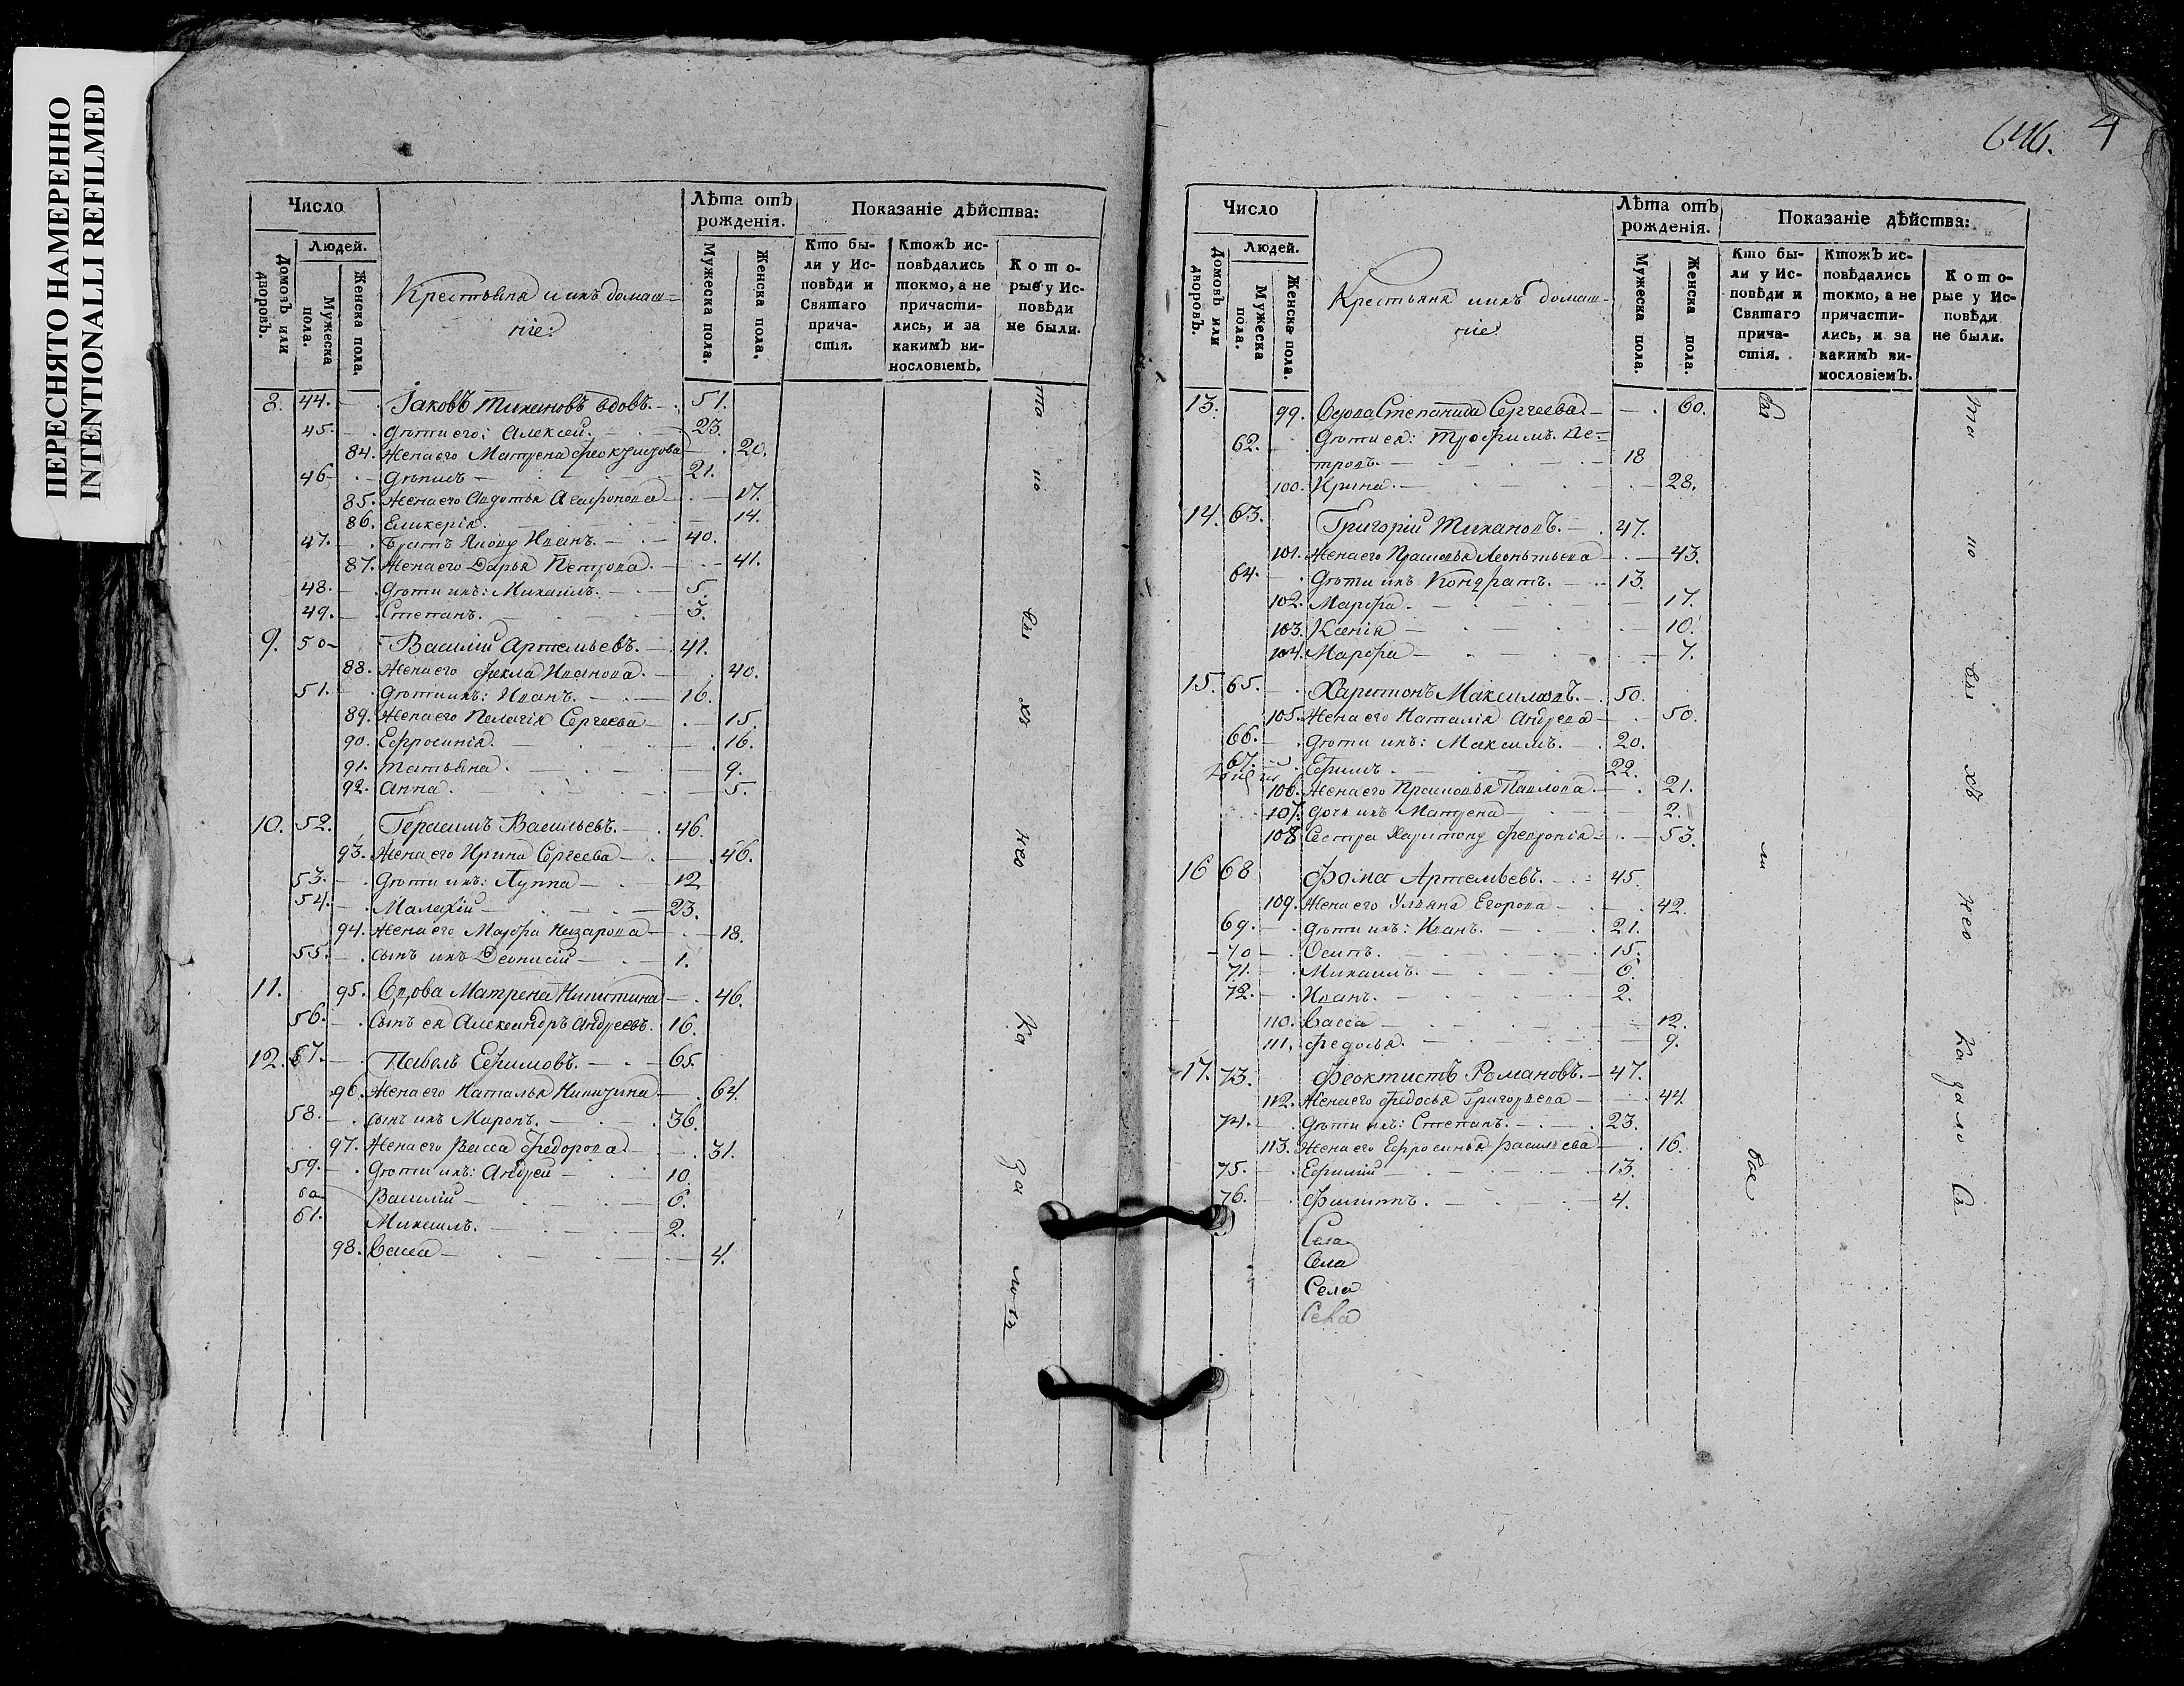 ПЕРЕСНЯТО НАМЕРЕННО
INTENTIONALLI REFILMED
Число
Людей.
Домовъ или дворовъ.
Мужеска пола.
Женска пола.
Крестьяна и ихъ домаш=
ніе:
Лѣта отъ
рожденія.
Мужеска пола.
Женска пола.
Показаніе дѣйства:
Кто бы-
ли у Ис-
повѣди и
Святаго
прича-
стія.
Ктожъ ис-
повѣдались
токмо, а не
причасти-
лись, и за
какимъ ви-
нословіемъ.
Кото-
рые у Ис-
повѣди
не были.
8. 44. Іаковъ Тихановъ вдовъ. 51.
45. Дѣти его: Алексей. 23.
84. Жена его Матрена 20.
46. Данилъ 21.
85. Жена его Авдотья Агафонова 17.
86. Гликерія. 14.
47. Братъ Якову Иванъ. 40.
87. Жена его Дарья Петрова. 41.
48. Дѣти ихъ: Михаилъ. 5.
49. Степанъ. 3.
9. 50 Василій Артемьевъ. 41.
88. Жена его Фекла Иванова. 40.
51. Дѣти ихъ: Иванъ. 16.
89. Жена его Пелагія Сергеева 15.
90. Ефросинія. 16.
91. Татьяна. 9.
92. Анна. 5.
10. 52. Герасимъ Васильевъ. 46.
93. Жена его Ирина Сергеева 46.
53. Дѣти ихъ: Луппа 12
54. Малафій 23.
94. Жена его Марфа Назарова 18.
55. Сынъ ихъ Деонисій 1.
11. 95. Вдова Матрена Никитина 46.
56. Сынъ ея Александръ Андреевъ. 16.
12. 57. Павелъ Ефимовъ. 65.
96. Жена его Наталья 64.
58. Сынъ ихъ Миронъ. 36.
97. Жена его Васса Федорова 31.
59. Дѣти ихъ: Андрей 10.
60 Василій 6.
61. Михаилъ. 2.
98. Васса 4.
646. 4
Число
Людей.
Домовъ или дворовъ.
Мужеска пола.
Женска пола.
Крестьяна и ихъ домаш-
ніе:
Лѣта отъ
рожденія.
Мужеска пола.
Женска пола.
Показаніе дѣйства:
Кто бы-
ли у Ис-
повѣди и
Святаго
прича-
стія.
Ктожъ ис-
повѣдались
токмо, а не
причасти-
лись, и за
какимъ ви-
нословіемъ.
Кото-
рые у Ис-
повѣди
не были.
13. 99. Вдова Степанида Сергеева 60.
62. Дѣти ея: Трофимъ Пе=
тровъ. 18
100. Ирина. 28.
14. 63. Григорій Тихановъ. 47.
101. Жена его Прасковья Леонтьева 43.
64. Дѣти ихъ Кондратъ. 13.
102. Марфа. 17.
103. Ксенія 10.
104. Марфа 7.
15. 65. Харитонъ Максимовъ. 50.
105. Жена его Наталія Андреева 50.
66. Дѣти ихъ: Максимъ. 20.
67. Ефимъ. 22.
106. Жена его Прасковья Павлова. 21.
107. Дочь ихъ Матрена 2.
108 Сестра Харитону Февронія 53.
16 68 Фома Артемьевъ. 45.
109. Жена его Ульяна Егорова 42.
69. Дѣти ихъ: Иванъ. 21.
70 Осипъ. 15.
71. Михаилъ. 6.
72. Иванъ. 2.
110. Васса 12.
111. Федосья. 9.
17. 73. Феоктистъ Романовъ. 47.
112. Жена его Федосья Григорьева 44.
74. Дѣти ихъ: Степанъ. 23.
113. Жена его Ефросинья Васильева 16.
75. Ефимій 13.
76. Филиппъ. 4.
Села
Села
Села